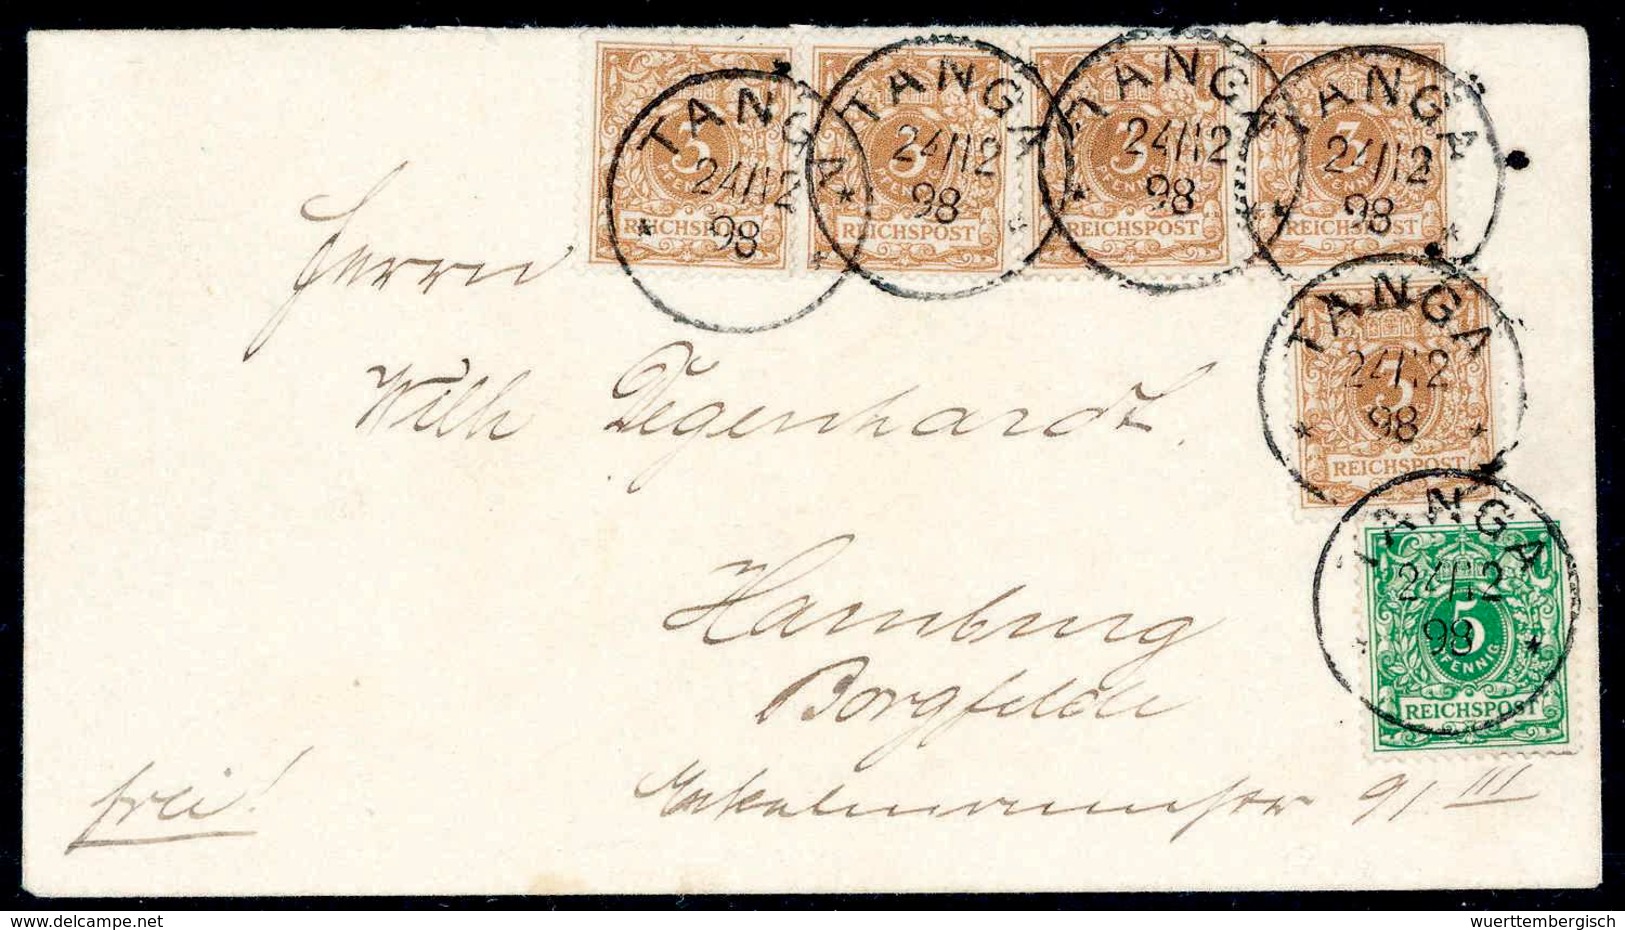 TANGA 24/12 98
3 PFENNIG REICHSPOST
TANGA 24/12 98
3 PFENNIG REICHSPOST
TANGA 24/12 98
3 PFENNIG REICHSPOST
TANGA 24/12 98
3 PFENNIG REICHSPOST
TANGA 24/12 98
3 REICHSPOST
TANGA 24/12 98
5 PFENNIG REICHSPOST
Herrn
Wilh Degenhardt.
Hamburg
Borgfelde
91 III
frei!
www.delcampe.net
wuerttembergisch